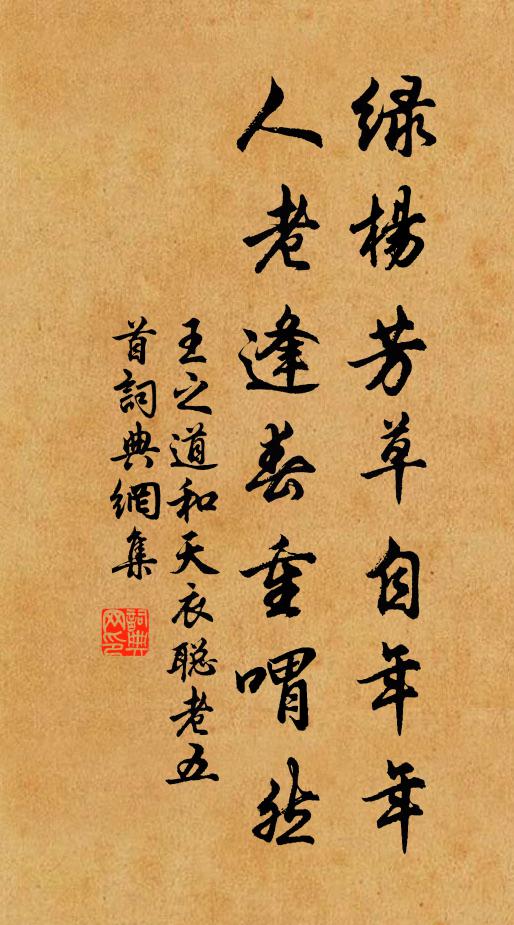 绿杨芳草自年年
人老逢春重喟然
王之道和天衣聪老五
首詞典網集
詞典
网印